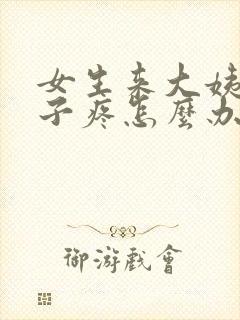 女生来大姨
子疼怎麼办
御游戲會